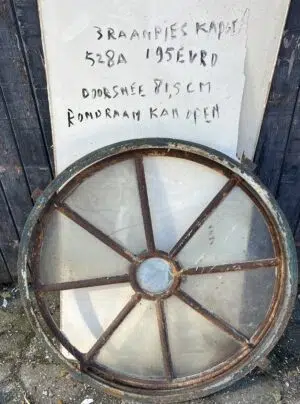 3 RAAMPJES KAPOT
528A 195 EVRO
DOORSNEE 81,5 CM
RONDRAAM KAN OPEN